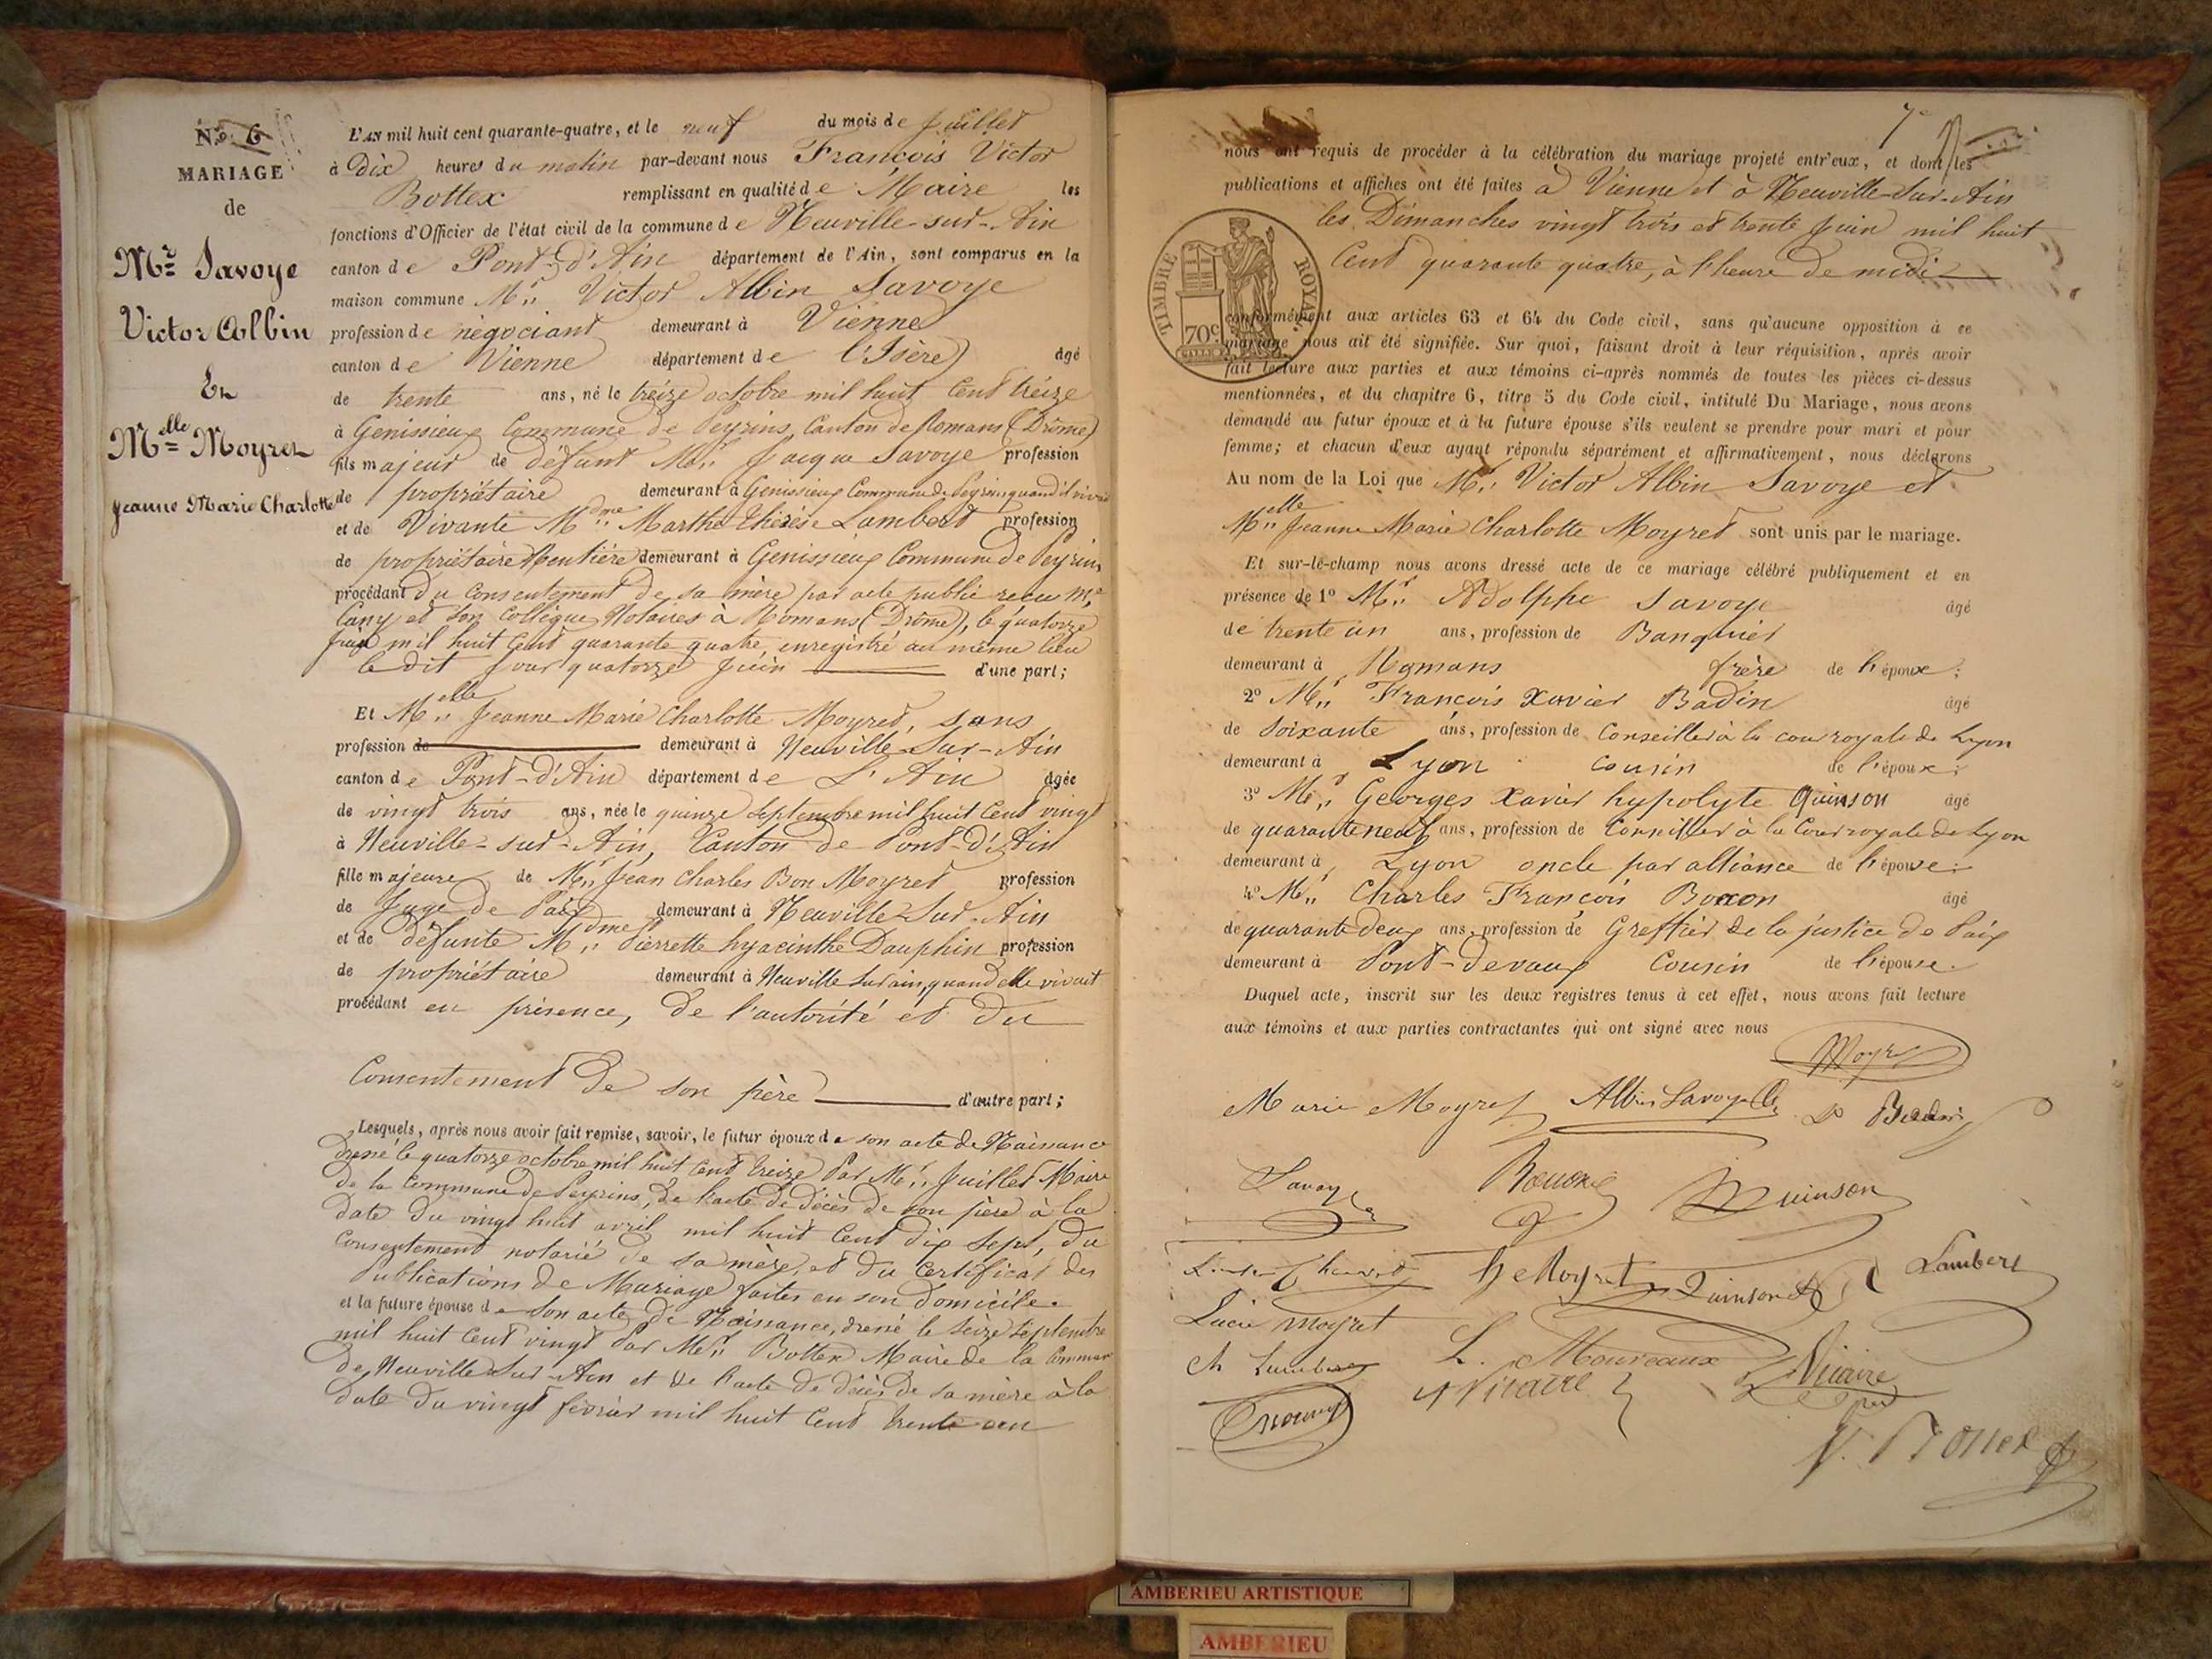 N.o 6
MARIAGE
de
Mr Savoye
Victor Albin
Et
Melle Moyret
Jeanne Marie Charlotte
L'AN mil huit cent quarante-quatre, et le neuf du mois de Juillet
à Dix heures du matin par-devant nous François Victor
Bottex remplissant en qualité de Maire les
fonctions d'Officier de l'état civil de la commune de Neuville-sur-Ain
canton de Pont-d'Ain département de l'Ain, sont comparus en la
maison commune Mr Victor Albin Savoye
profession de négociant demeurant à Vienne
canton de Vienne département de l'Isère âgé
de trente ans, né le treize octobre mil huit Cent treize
à Genissieux Commune de Peyrins, Canton de Romans (Drôme)
fils majeur de défunt Mr Jacque Savoye profession
de propriétaire demeurant à Genissieux Commune de Peyrins quand il vivait
et de Vivante Mdme Marthe Thérèse Lambert profession
de propriétaire Rentière demeurant à Genissieux Commune de Peyrins
procédant du Consentement de sa mère par acte public reçu Me
Cany et son Collègue Notaires à Romans (Drôme), le quatorze
Juin mil huit Cent quarante quatre, enregistré au même lieu
le dit Jour quatorze Juin d'une part;
Et Melle Jeanne Marie Charlotte Moyret, sans
profession de demeurant à Neuville-Sur-Ain
canton de Pont-d'Ain département de L'Ain âgée
de vingt trois ans, née le quinze Septembre mil huit Cent vingt
à Neuville-sur-Ain, Canton de Pont-d'Ain
fille majeure de Mr Jean Charles Bon Moyret profession
de Juge de Paix demeurant à Neuville Sur-Ain
et de défunte Mdme Pierrette hyacinthe Dauphin profession
de propriétaire demeurant à Neuville Sur ain, quand elle vivait
procédant en présence, de l'autorité et du
Consentement de son père d'autre part;
Lesquels, après nous avoir fait remise, savoir, le futur époux de son acte de Naissance
dressé le quatorze octobre mil huit Cent treize Par Mr Juillet Maire
de la Commune de Peyrins, de l'acte de décès de son père à la
date du vingt huit avril mil huit Cent dix Sept, du
Consentement notarié de sa mère, et du Certificat des
Publications de Mariage faites en son domicile.
et la future épouse de Son acte de Naissance, dressé le seize Septembre
mil huit Cent vingt Par Mr Bottex Maire de la Commune
de Neuville Sur-Ain et de l'acte de décès de sa mère à la
date du vingt février mil huit Cent trente un
7e
nous ont requis de procéder à la célébration du mariage projeté entr'eux, et dont les
publications et affiches ont été faites à Vienne et à Neuville-Sur-Ain
les Dimanches vingt trois et trente Juin mil huit
Cent quarante quatre, à l'heure de midi
TIMBRE ROYAL
70c
conformément aux articles 63 et 64 du Code civil, sans qu'aucune opposition à ce
mariage nous ait été signifiée. Sur quoi, faisant droit à leur réquisition, après avoir
fait lecture aux parties et aux témoins ci-après nommés de toutes les pièces ci-dessus
mentionnées, et du chapitre 6, titre 5 du Code civil, intitulé Du Mariage, nous avons
demandé au futur époux et à la future épouse s'ils veulent se prendre pour mari et pour
femme; et chacun d'eux ayant répondu séparément et affirmativement, nous déclarons
Au nom de la Loi que Mr Victor Albin Savoye et
Melle Jeanne Marie Charlotte Moyret sont unis par le mariage.
Et sur-le-champ nous avons dressé acte de ce mariage célébré publiquement et en
présence de 1o Mr Adolphe Savoye âgé
de trente un ans, profession de Banquier
demeurant à Romans frère de l'époux;
2o Mr François Xavier Badin âgé
de Soixante ans, profession de Conseiller à la cour royale de Lyon
demeurant à Lyon cousin de l'époux;
3o Mr Georges Xavier hypolyte Quinson âgé
de quarante neuf ans, profession de Conseiller à la Cour royale de Lyon
demeurant à Lyon oncle par alliance de l'épouse;
4o Mr Charles François Bonon âgé
de quarante deux ans, profession de Greffier de la justice de Paix
demeurant à Pont-Devaux Cousin de l'épouse.
Duquel acte, inscrit sur les deux registres tenus à cet effet, nous avons fait lecture
aux témoins et aux parties contractantes qui ont signé avec nous
Moyret
Marie Moyret Albin Savoye Badin
Savoye Quinson
Moyret Quinson Lambert
Lucie Moyret L. Mourcaux
Ch Lambert Nicaire Nicaire
V. Bottex
AMBERIEU ARTISTIQUE
AMBERIEU